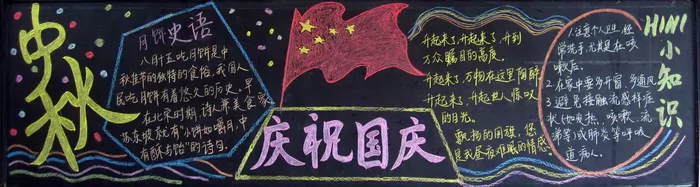 中秋
月饼史语
八月十五吃月饼是中
秋佳节的独特的食俗,我国人
民吃月饼有着悠久的历史,早
在北宋时期,诗人兼美食家
苏东坡就有"小饼如嚼月,中
有酥与饴"的诗句.
庆祝国庆
升起来了,升起来了,升到
万众瞩目的高度,
升起来了,万物在这里陶醉
升起来了,升起世人惊叹
的目光。
飘扬的国旗,您
是我最夜难眠的情感
H1N1小知识
1.注意个人卫生,经
常洗手,尤其是在咳
嗽后。
2.在家中要多开窗,多通风
3.避免接触流感样症
状(如发热、咳嗽、流
涕等)或肺炎等呼吸
道病人.